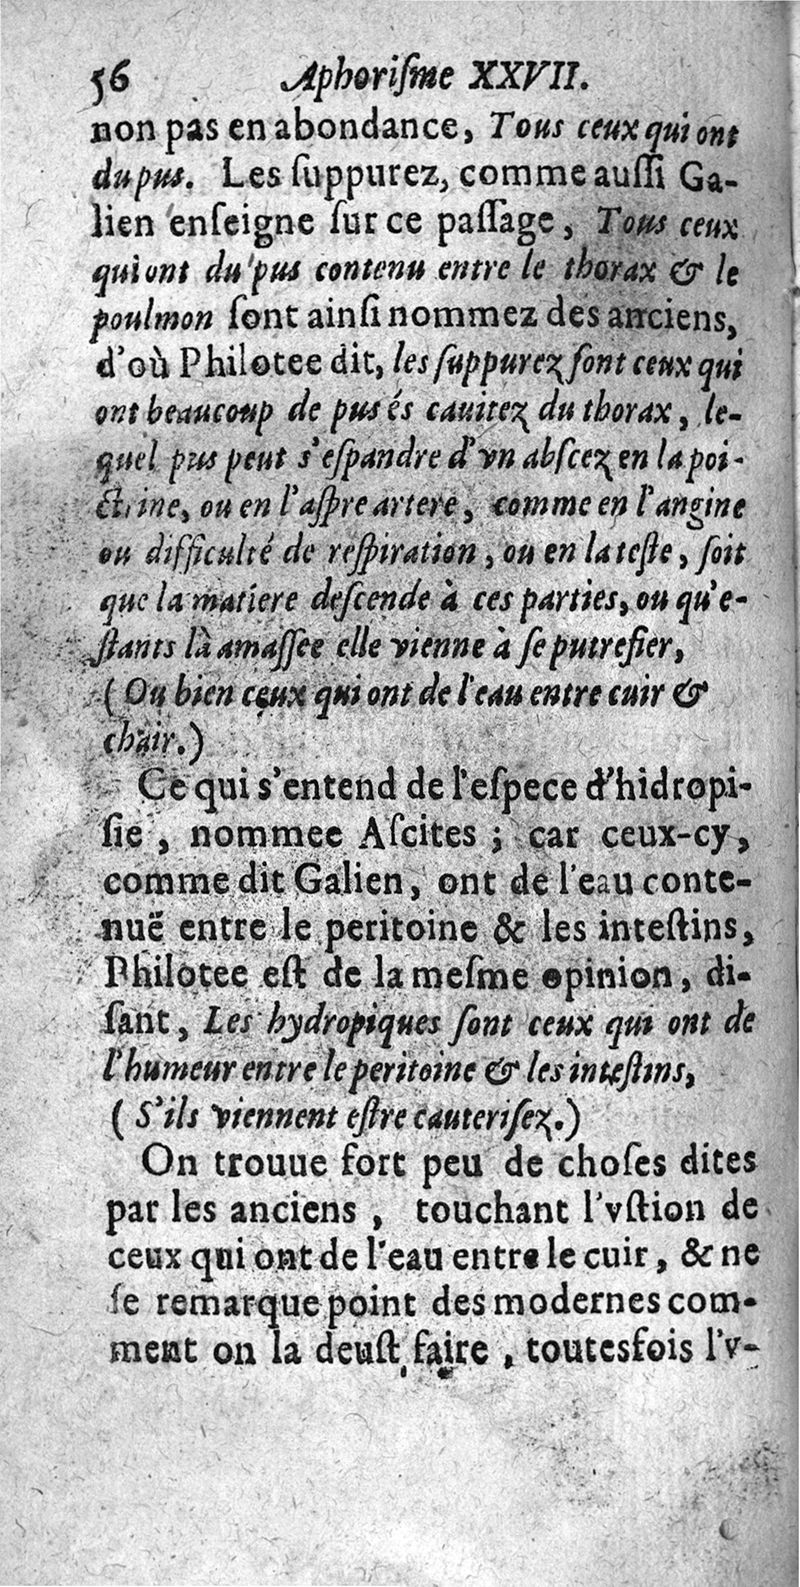 56 Aphoriſme XXVII.
non pas en abondance, Tous ceux qui ont
du pus. Les ſuppurez, comme auſſi Ga-
lien enſeigne ſur ce paſſage, Tous ceux
qui ont du pus contenu entre le thorax & le
poulmon ſont ainſi nommez des anciens,
d'où Philotee dit, les ſuppurez ſont ceux qui
ont beaucoup de pus és cauitez du thorax, le-
quel pus peut s'eſpandre d'vn abſcez en la poi-
ctrine, ou en l'aſpre artere, comme en l'angine
ou difficulté de reſpiration, ou en la teſte, ſoit
que la matiere deſcende à ces parties, ou qu'e-
ſtants là amaſſee elle vienne à ſe putrefier,
(Ou bien ceux qui ont de l'eau entre cuir &
chair.)
Ce qui s'entend de l'eſpece d'hidropi-
ſie, nommee Aſcites; car ceux-cy,
comme dit Galien, ont de l'eau conte-
nuë entre le peritoine & les inteſtins,
Philotee eſt de la meſme opinion, di-
ſant, Les hydropiques ſont ceux qui ont de
l'humeur entre le peritoine & les inteſtins,
(S'ils viennent eſtre cauteriſez.)
On trouue fort peu de choſes dites
par les anciens, touchant l'vſtion de
ceux qui ont de l'eau entre le cuir, & ne
ſe remarque point des modernes com-
ment on la deuſt faire, toutesfois l'v-